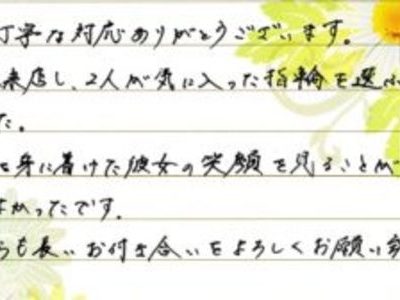 丁寧な対応ありがとうございます。
来店し、2人が気に入った指輪を選ぶ
た。
身に着けた彼女の笑顔を見ることが
よかったです。
も長いお付き合いをよろしくお願い致